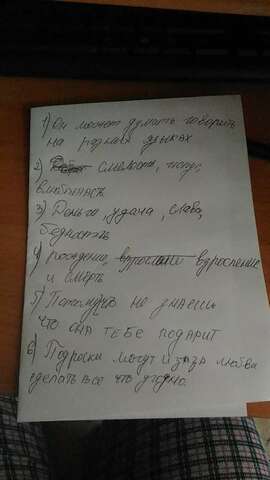 1) Он может думать говорить
на разных языках
2) смелость,
влюбчивость
3) Деньги, удача, слава,
бедность
4) рождение, взросление
и смерть
5) Потомучто не знаеш
что она тебе подарит
6) Подростки могут из за любви
сделать все что угодно.